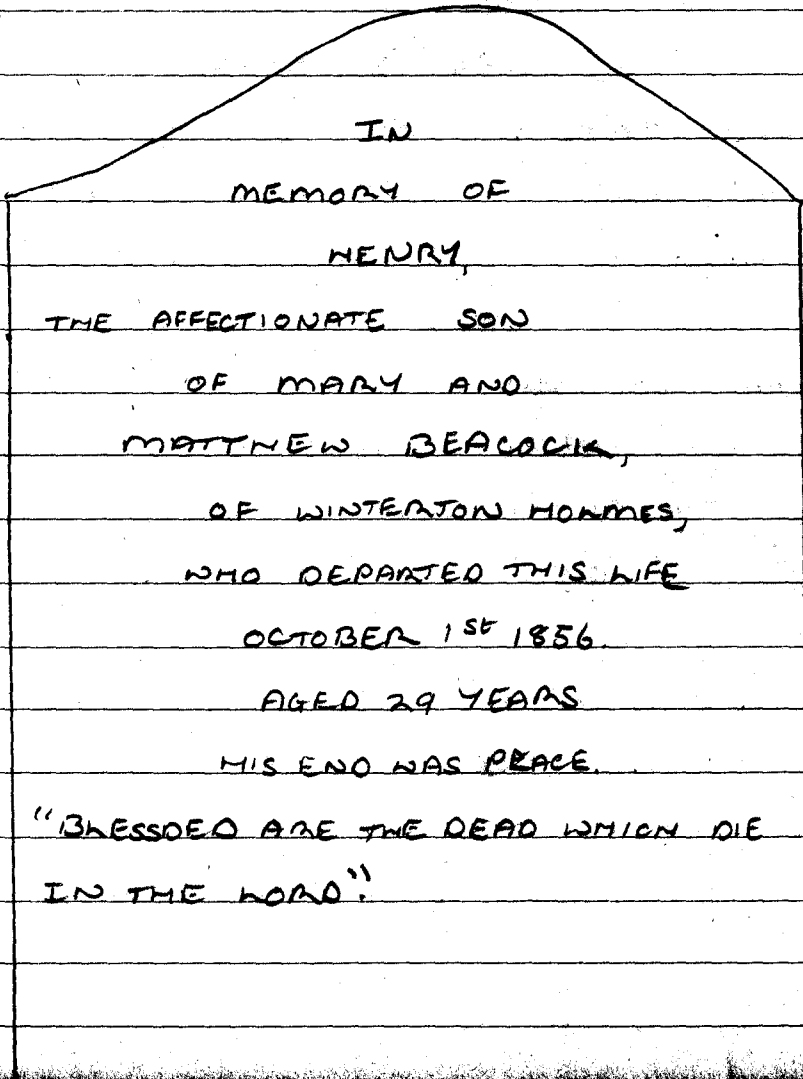 IN
MEMORY OF
HENRY,
THE AFFECTIONATE SON
OF MARY AND
MATTHEW BEACOCK,
OF WINTERTON HOLMES,
WHO DEPARTED THIS LIFE
OCTOBER 1st 1856.
AGED 29 YEARS
HIS END WAS PEACE.
"BLESSDED ARE THE DEAD WHICH DIE
IN THE LORD".